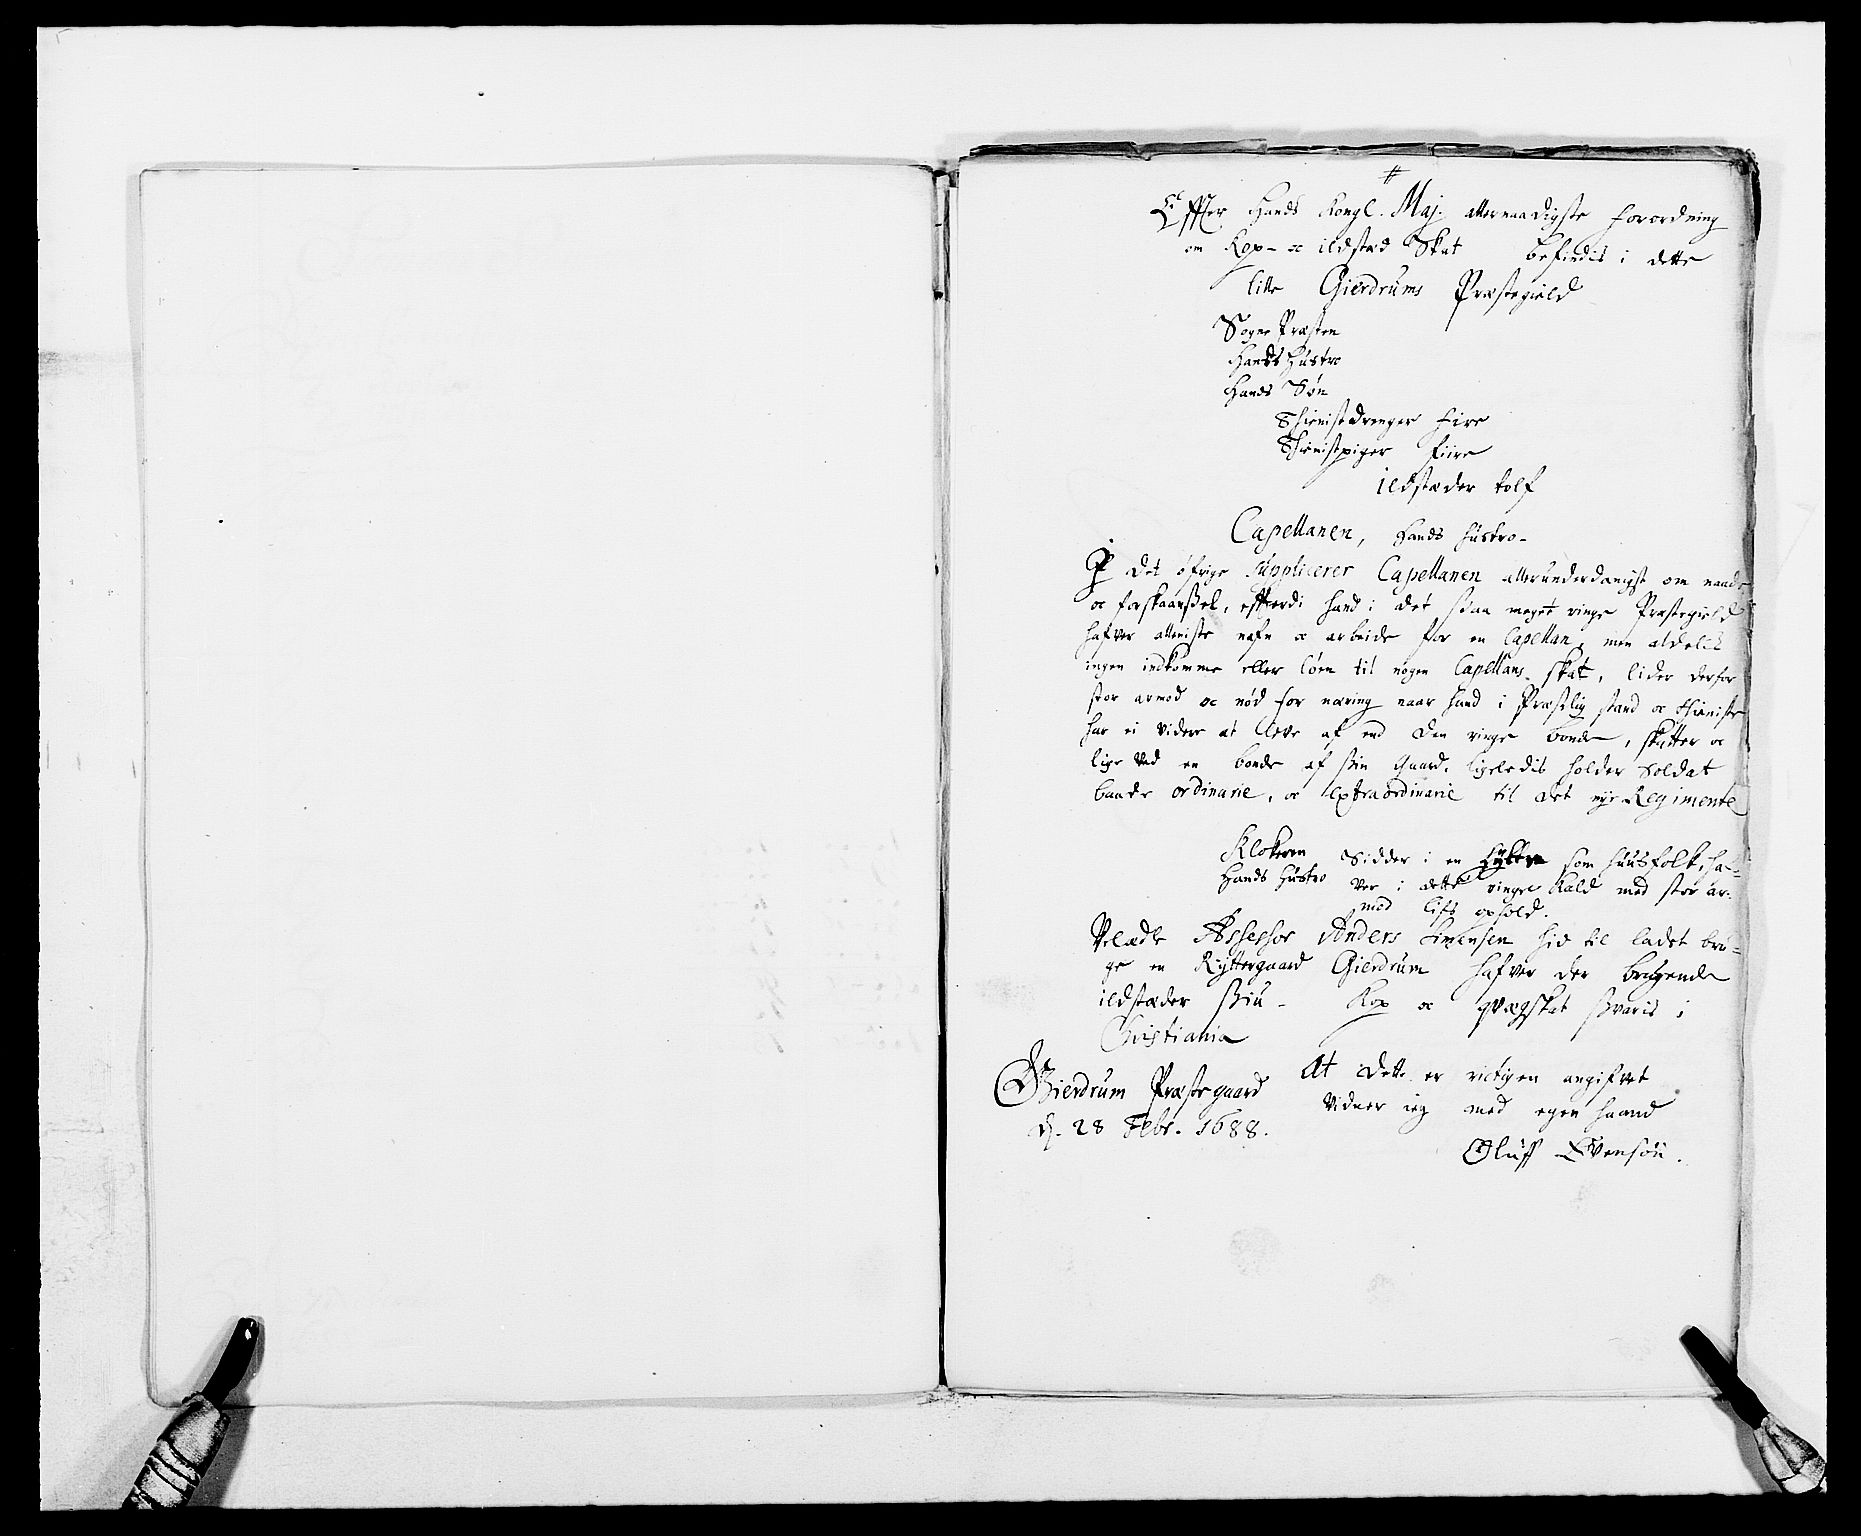 #
Effter Hands Kongl. Maj. allernaadigste forordning
om Kop- oc ildsted Skat befindis i dette
litle Gierdrums Præstegield
Sogne Præsten
Hands Hustro
Hands Søn
Thienistedrenger fire
Thienistpiger fiire
Ildstæder tolf
Capellanen, Hands hustro-
I det öfrige suppliicerer Capellanen allerunderdanigst om naade
oc forskaanßel, efftterdi hand i det ßaa meget ringe Præstegield
hafver alleniste nafn oc arbeide for en Capellan, men aldelis
ingen indkomme eller löen til nogen Capellans skat, lider derfor
stor armod oc nöd for næring naar hand i Præstlig stand oc thieniste
har ei videre at leve af end den ringe bonde, skatter oc
lige ved en bonde af ßin Gaard, ligeledis holder Soldat
baade ordinarie, oc extraordinarie til det nye Regimente
Klokeren Sidder i en Hytte som huusfolk, haf-
Hands Hustro ver i dette ringe Kald med stor ar-
mod lifs ophold.
Velædle Assessor Anders Simensen hid til ladet bru-
ge en Ryttergaard Gierdrum hafver der brugende
ildstæder ßiu - Kop oc qvægskat ßvaris i
Christiania
Gierdrum Præstegaard At dette er rictigen angifvet
d. 28 Febr. 1688. Vidner ieg med egen haand
Oluff Evensön.